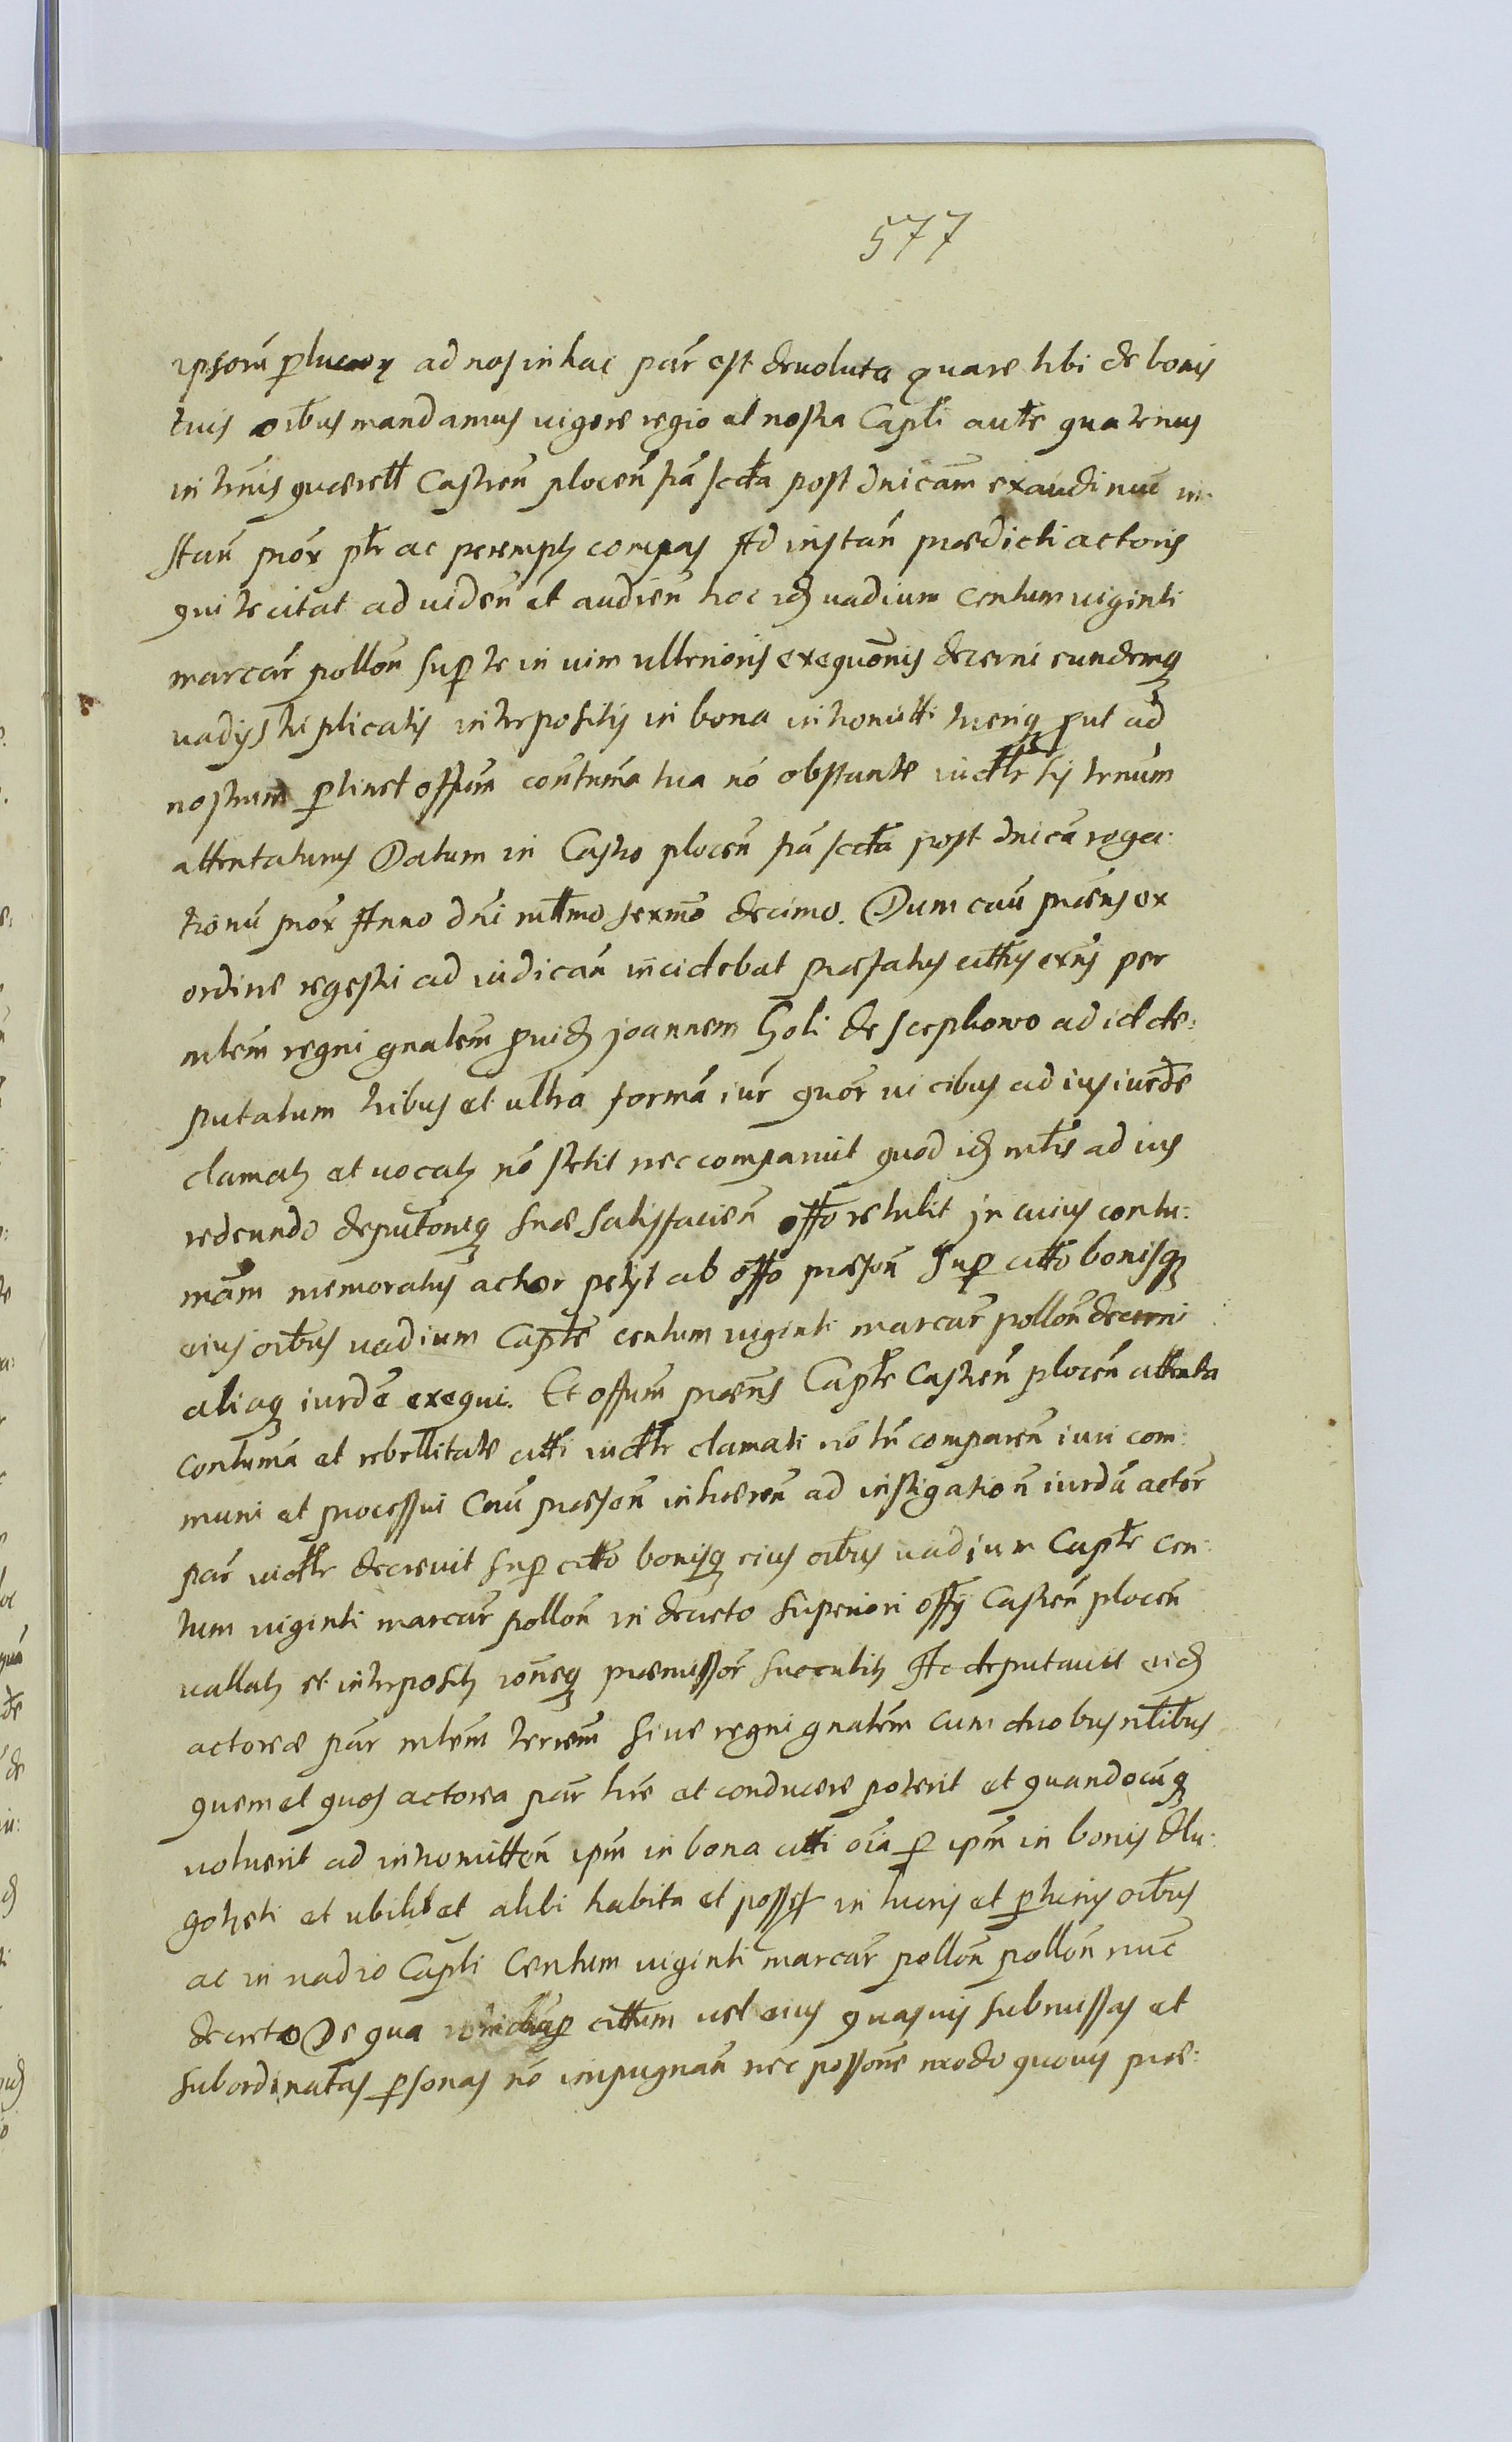 577
ipsorū ꝑlucrorꝫ ad nos in hac pār est deuoluta quare tibi de bonis
tuis oībus mandamus uigore regio et nostra Capłi autte quatenus
in trnis quaerell Castren̄ plocen̄ fra sccta post dnicam exaudi nūc in:
stan̄ prox ptr ac peremptꝫ compas Ad instān praedicti actoris
qui te citat ad uiden̄ et audien̄ hoc idꝫ uadium centum uiginti
marcār pollon̄ supꝑ te in uim ulterioris exequōnis decerni eundemqꝫ
uadijs triplicatis interpositis in bona intromitti tueriqꝫ ꝓut ad
nostrum ꝑtinet offum contumā tua nō obstante iudtłr sis trnum
attentaturus Datum in Castro plocen̄ fra sccta post dnicā roga:
tionū prox Anno dn̄i młłmo sexmo decimo. Dum cau praens ex
ordine regestri ad iudicān incidebat praefatus citus exn̄s per
mlem regni gnalem ꝓuidꝫ joannem Goli de sczepkowo ad id de:
putatum tribus et ultra formā iur quor uicibus ad ius iurde
clamatꝫ et uocatꝫ nō stetit nec comparuit quod idꝫ mlis ad ius
redeundo deputoniqꝫ suae satisfacien̄ offo retulit in cuius contu:
mām memoratus actor petijt ab offo praeson̄ supꝑ citto bonisqꝫ
eius oībus uadium Capłe centum uiginti marcār pollon̄ decerni
aliaqꝫ iurde exequi. Et offum praens Capłe Castren̄ plocen̄ attenta
contumā et rebellitate citti iudtłr clamati nō tn̄ comparen̄ iuri com:
muni et processui Cau praeson̄ inhaeren̄ ad instigation̄ iurdā actor
pār iudtłr decreuit supꝑ citto bonisqꝫ eius oībus uadium Capłe cen:
tum uiginti marcār pollon̄ in decreto superiori offij Castren̄ plocen̄
uallatꝫ et interpositꝫ roneqꝫ praemissor succubitꝫ Ac deputauit eidꝫ
actoreae pār mlem terrem siue regni gnalem cum duobus nłibus
quem et quos actorea pār hre et conducere poterit et quandocūqꝫ
uoluerit ad intromitten̄ ipm in bona citti oīa ꝑ ipm in bonis dłu:
gołseki et ubilibet alibi habita et possess in lucris et ꝑlucris oībus
ac in uadio Capłi Centum uiginti marcār pollon̄ pollon̄ nuc
decreto De qua cittum uel eius quasuis submissas et
subordinatas ꝑsonas nō impugnan̄ nec possone modo quouis prae: